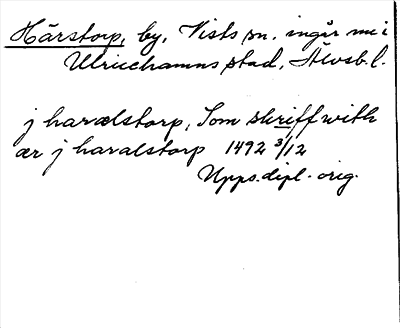 Härstorp, by, Vists sn. ingår nu i
Ulricehamns stad, Älvsb. l.
j haralstorp, Som skriff with
ær j haralstorp 1492 3/12
Upps. dipl. orig.